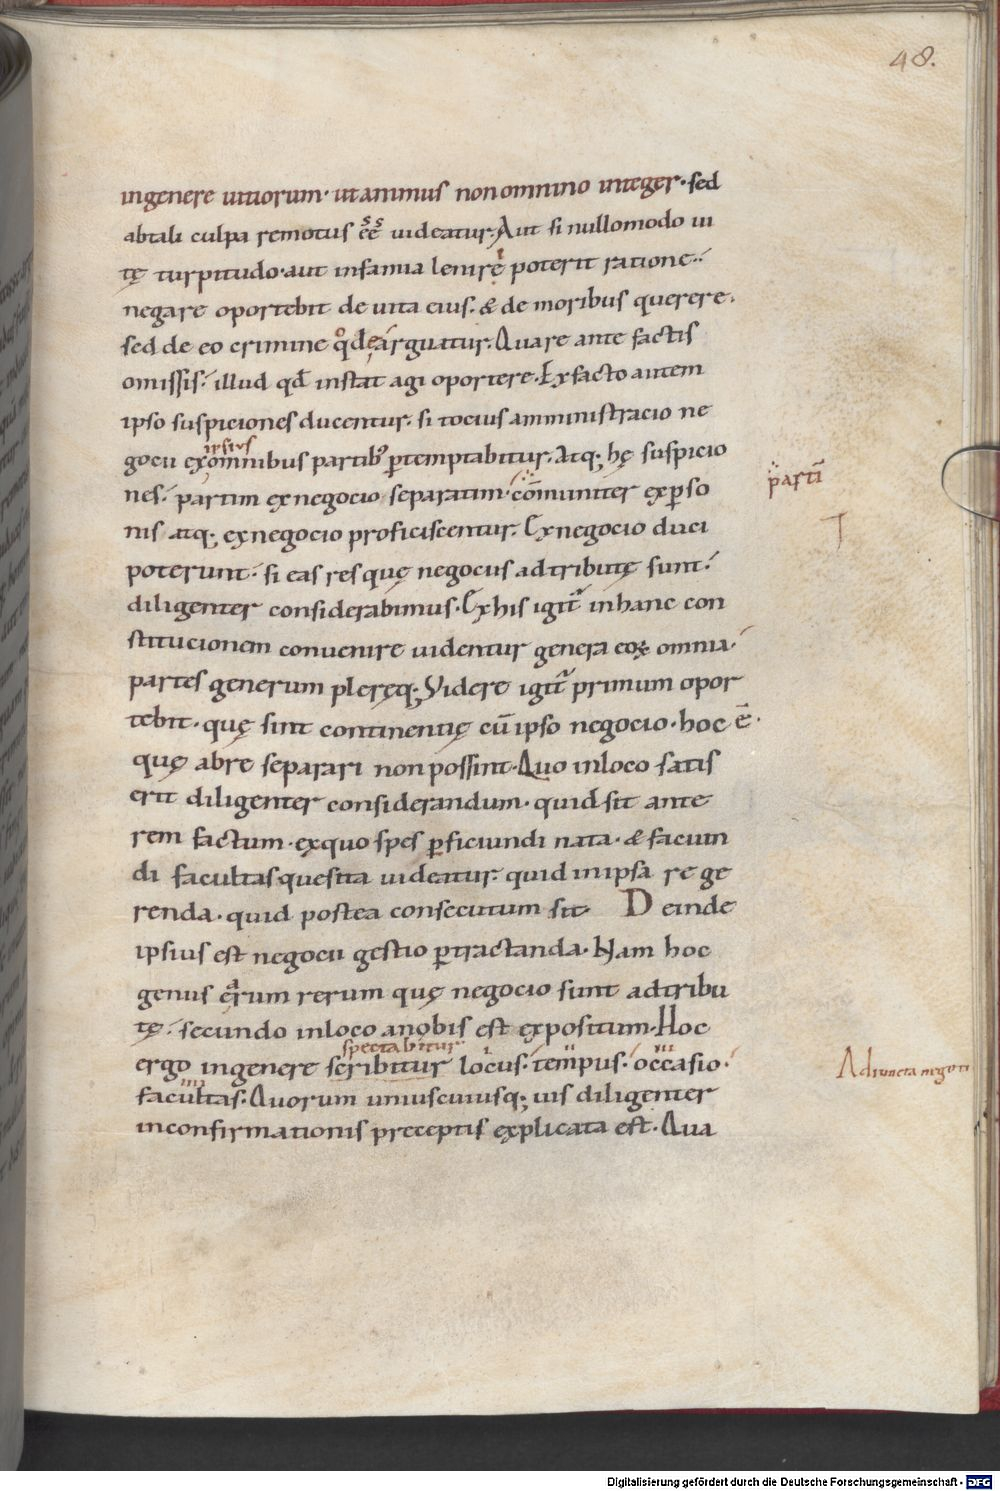 48.
ingenere uitiorum· ut animus non omnino integer· sed
abtali culpa remotus eē uideatur. Aut si nullomodo ui
tę turpitudo· aut infamia leniri poterit ratione·
negare oportebit de uita eius· & de moribus querere·
sed de eo crimine qͦd arguatur. Quare ante factis
omissis· illud qđ instat agi oportere. Ex facto autem
ipso suspiciones ducentur· si tocius amministracio ne
gocii ex omnibus partibꝰ ꝑtemptabitur. Atq; hę suspicio
ipsius
nes· partim ex negocio separatim· cōmuniter ex ꝑso
partī
nis atq; ex negocio proficiscentur. Ex negocio duci
poterunt· si eas res quę negociis adtributę sunt·
diligenter considerabimus. Ex his igit̄ in hanc con
stitucionem conuenire uidentur genera eoꝝ omnia·
partes generum pleręq; Videre igit̄ primum opor
tebit· quę sint continentię cū ipso negocio· hoc ē·
quę abre separari non possint. Quo inloco satis
erit diligenter considerandum· quid sit ante
rem factum· exquo spes ꝑficiundi nata· & faciun
di facultas quesita uideatur· quid inipsa re ge
renda· quid postea consecutum sit· Deinde
ipsius est negocii gestio ꝑtractanda· Nam hoc
genus erum rerum quę negocio sunt adtribu
tę· secundo inloco anobis est expositum. Hoc
ergo ingenere scribitur locus· tempus· occasio·
spectabitur
Adiuncta negoti
facultas. Quorum uniuscuiusq; uis diligenter
inconfirmationis preceptis explicata est. Qua
Digitalisierung gefördert durch die Deutsche Forschungsgemeinschaft - DFG